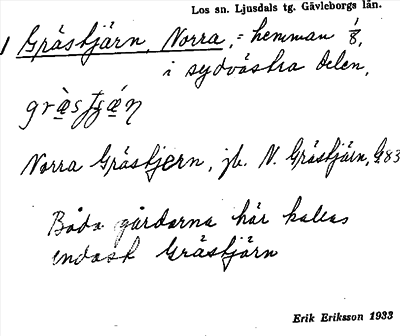 Los sn. Ljusdals tg. Gävleborgs län.
1 Gråstjärn, Norra, = hemman 1/8,
i sydvästra delen.
Norra Gråstjern, jb. N. Gråstjärn,
Båda gårdarna här kallas
endast Gråstjärn
Erik Eriksson 1933